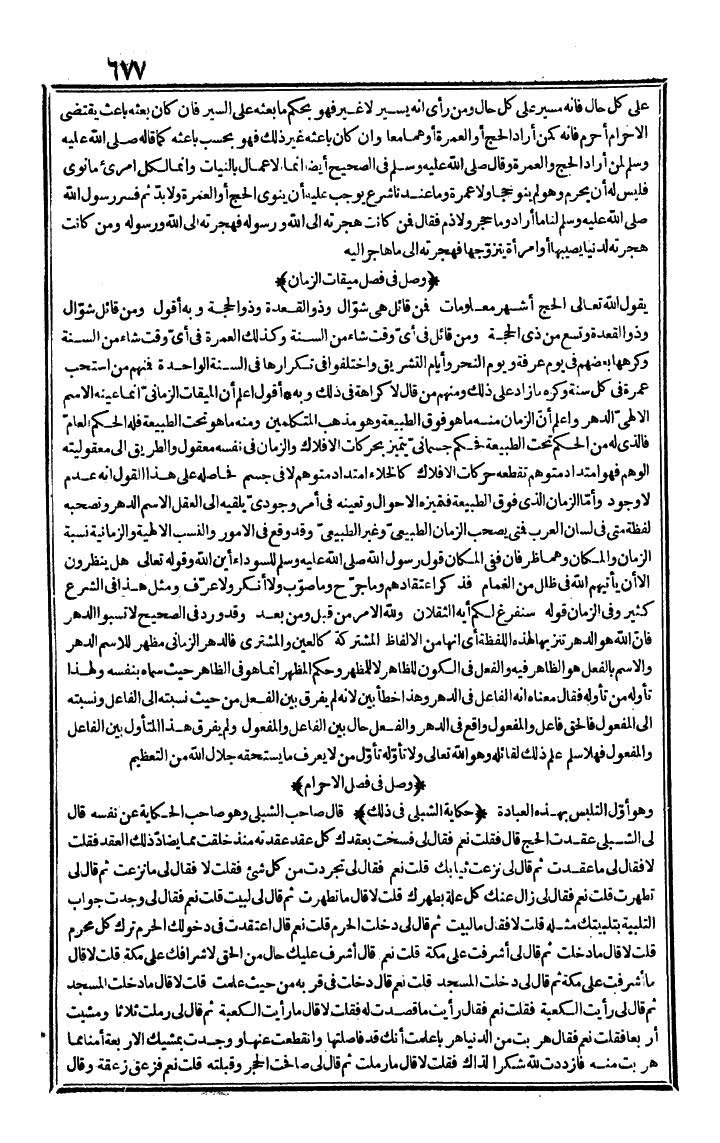 ٦٧٧
على كل حال فانه مسير على كل حال ومن رأى انه يسير لا غير فهو بحكم ما بعثه على السير فان كان بعثه باعث يقتضى
الاحرام أحرم فانه كمن أراد الحج أو العمرة أو هما معا وان كان باعثه غير ذلك فهو بحسب باعثه كما قاله صلى الله عليه
وسلم لمن أراد الحج والعمرة وقال صلى الله عليه وسلم فى الصحيح أيضا انما الاعمال بالنيات وانما لكل امرئ ما نوى
فليس له أن يحرم وهو لم ينو حجا ولا عمرة وما عندنا شرع يوجب عليه أن ينوى الحج أو العمرة ولا بدّ ثم فسر رسول الله
صلى الله عليه وسلم لنا ما أراد وما حجر ولا ذم فقال فمن كانت هجرته الى الله ورسوله فهجرته الى الله ورسوله ومن كانت
هجرته لدنيا يصيبها أو امرأة يتزوّجها فهجرته الى ما هاجر اليه
﴿وصل فى فصل ميقات الزمان﴾
يقول الله تعالى الحج أشهر معلومات فمن قائل هى شوّال وذو القعدة وذو الحجة وبه أقول ومن قائل شوّال
وذو القعدة وتسع من ذى الحجة ومن قائل فى أىّ وقت شاء من السنة وكذلك العمرة فى أىّ وقت شاء من السنة
وكرهها بعضهم فى يوم عرفة ويوم النحر وأيام التشريق واختلفوا فى تكرارها فى السنة الواحدة فمنهم من استحب
عمرة فى كل سنة وكره ما زاد على ذلك ومنهم من قال لا كراهة فى ذلك وبه أقول اعلم أن الميقات الزمانىّ انما عينه الاسم
الالهىّ الدهر واعلم أنّ الزمان منه ما هو فوق الطبيعة وهو مذهب المتكلمين ومنه ما هو تحت الطبيعة فله الحكم العامّ
فالذى له من الحكم تحت الطبيعة فحكم جسمانىّ يتميز بحركات الافلاك والزمان فى نفسه معقول والطريق الى معقوليته
الوهم فهو امتداد متوهم تقطعه حركات الافلاك كالخلاء امتداد متوهم لا فى جسم فحاصله على هذا القول انه عدم
لا وجود وأمّا الزمان الذى فوق الطبيعة فتميزه الاحوال وتعينه فى أمر وجودىّ يلقيه الى العقل الاسم الدهر وتصحبه
لفظة متى فى لسان العرب فمتى يصحب الزمان الطبيعىّ وغير الطبيعىّ وقد وقع فى الامور والنسب الالهية والزمانية نسبة
الزمان والمكان وهما ظرفان ففى المكان قول رسول الله صلى الله عليه وسلم للسوداء أين الله وقوله تعالى هل ينظرون
الا أن يأتيهم الله فى ظلل من الغمام فذكر اعتقادهم وما جرّح وما صوّب ولا أنكر ولا عرّف ومثل هذا فى الشرع
كثير وفى الزمان قوله سنفرغ لكم أيه الثقلان ولله الامر من قبل ومن بعد وقد ورد فى الصحيح لا تسبوا الدهر
فانّ الله هو الدهر تنزيها لهذه اللفظة أى انها من الالفاظ المشتركة كالعين والمشترى فالدهر الزمانى مظهر للاسم الدهر
والاسم بالفعل هو الظاهر فيه والفعل فى الكون للظاهر لا للمظهر وحكم المظهر انما هو فى الظاهر حيث سماه بنفسه ولهذا
تأوله من تأوله فقال معناه انه الفاعل فى الدهر وهذا خطأ بين لانه لم يفرق بين الفعل من حيث نسبته الى الفاعل ونسبته
الى المفعول فالحق فاعل والمفعول واقع فى الدهر والفعل حال بين الفاعل والمفعول ولم يفرق هذا المتأول بين الفاعل
والمفعول فهلا سلم علم ذلك لقائله وهو الله تعالى ولا تأوّله تأوّل من لا يعرف ما يستحقه جلال الله من التعظيم
﴿وصل فى فصل الاحرام﴾
وهو أوّل التلبس بهذه العبادة ﴿حكاية الشبلى فى ذلك﴾ قال صاحب الشبلى وهو صاحب الحكاية عن نفسه قال
لى الشبلى عقدت الحج قال فقلت نعم فقال لى فسخت بعقدك كل عقد عقدته منذ خلقت مما يضادّ ذلك العقد فقلت
لا فقال لى ما عقدت ثم قال لى نزعت ثيابك قلت نعم فقال لى تجردت من كل شئ فقلت لا فقال لى ما نزعت ثم قال لى
تطهرت قلت نعم فقال لى زال عنك كل علة بطهرك قلت لا قال ما تطهرت ثم قال لى لبيت قلت نعم فقال لى وجدت جواب
التلبية بتلبيتك مثله قلت لا فقال ما لبيت ثم قال لى دخلت الحرم قلت نعم قال اعتقدت فى دخولك الحرم ترك كل محرم
قلت لا قال ما دخلت ثم قال لى أشرفت على مكة قلت نعم قال أشرف عليك حال من الحق لاشرافك على مكة قلت لا قال
ما أشرفت على مكة ثم قال لى دخلت المسجد قلت نعم قال دخلت فى قربه من حيث علمت قلت لا قال ما دخلت المسجد
ثم قال لى رأيت الكعبة فقلت نعم فقال رأيت ما قصدت له فقلت لا قال ما رأيت الكعبة ثم قال لى رملت ثلاثا ومشيت
أربعا فقلت نعم فقال هربت من الدنيا هربا علمت أنك قد فاصلتها وانقطعت عنها ووجدت بمشيك الاربعة أمنا مما
هربت منه فازددت لله شكرا لذلك فقلت لا قال ما رملت ثم قال لى صافحت الحجر وقبلته قلت نعم فزعق زعقة وقال